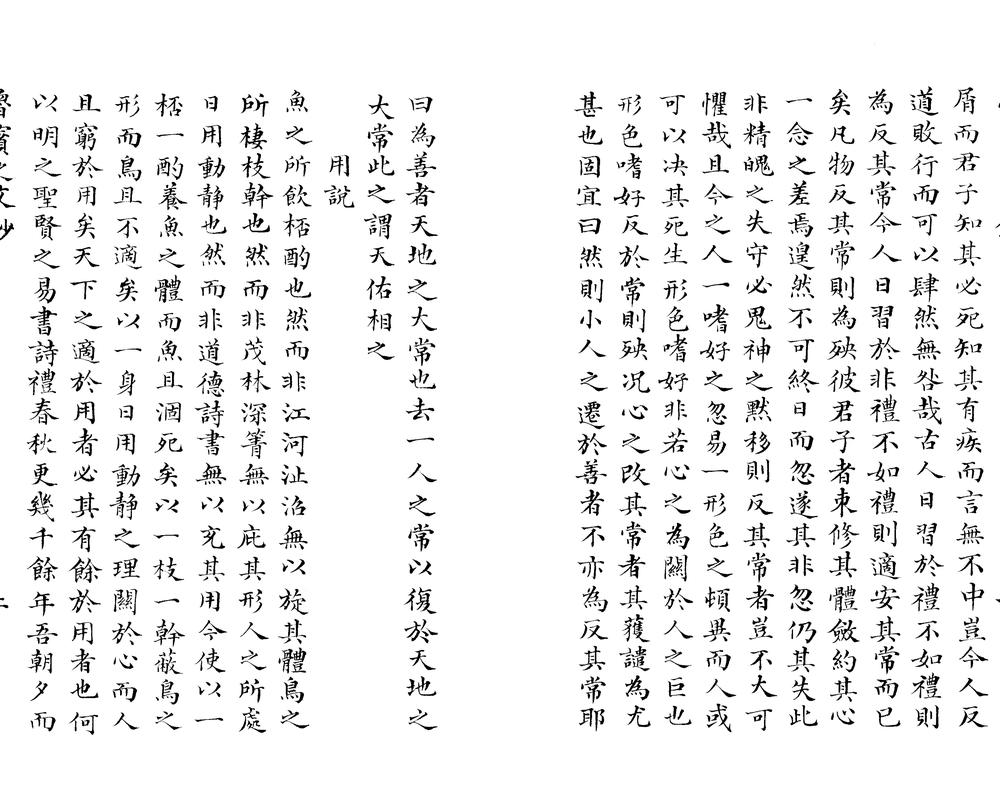 屑而君子知其必死知其有疾而言無不中豈今人反
道敗行而可以肆然無咎哉古人日習於禮不如禮則
為反其常今人日習於非禮不如禮則適安其常而已
矣凡物反其常則為殃彼君子者束修其體斂約其心
一念之差焉遑然不可終日而忽遂其非忽仍其失此
非精魄之失守必鬼神之黙移則反其常者豈不大可
懼哉且今之人一嗜好之忽易一形色之頓異而人或
可以决其死生形色嗜好非若心之為關於人之巨也
形色嗜好反於常則殃况心之改其常者其獲譴為尤
甚也固宜曰然則小人之遷於善者不亦為反其常耶
曰為善者天地之大常也去一人之常以復於天地之
大常此之謂天佑相之
用說
魚之所飲桮酌也然而非江河沚沼無以旋其體鳥之
所棲枝幹也然而非茂林深箐無以庇其形人之所處
日用動靜也然而非道德詩書無以充其用今使以一
桮一酌養魚之體而魚且涸死矣以一枝一幹蔽鳥之
形而鳥且不適矣以一身日用動靜之理關於心而人
且窮於用矣天下之適於用者必其有餘於用者也何
以明之聖賢之易書詩禮春秋更幾千餘年吾朝夕而